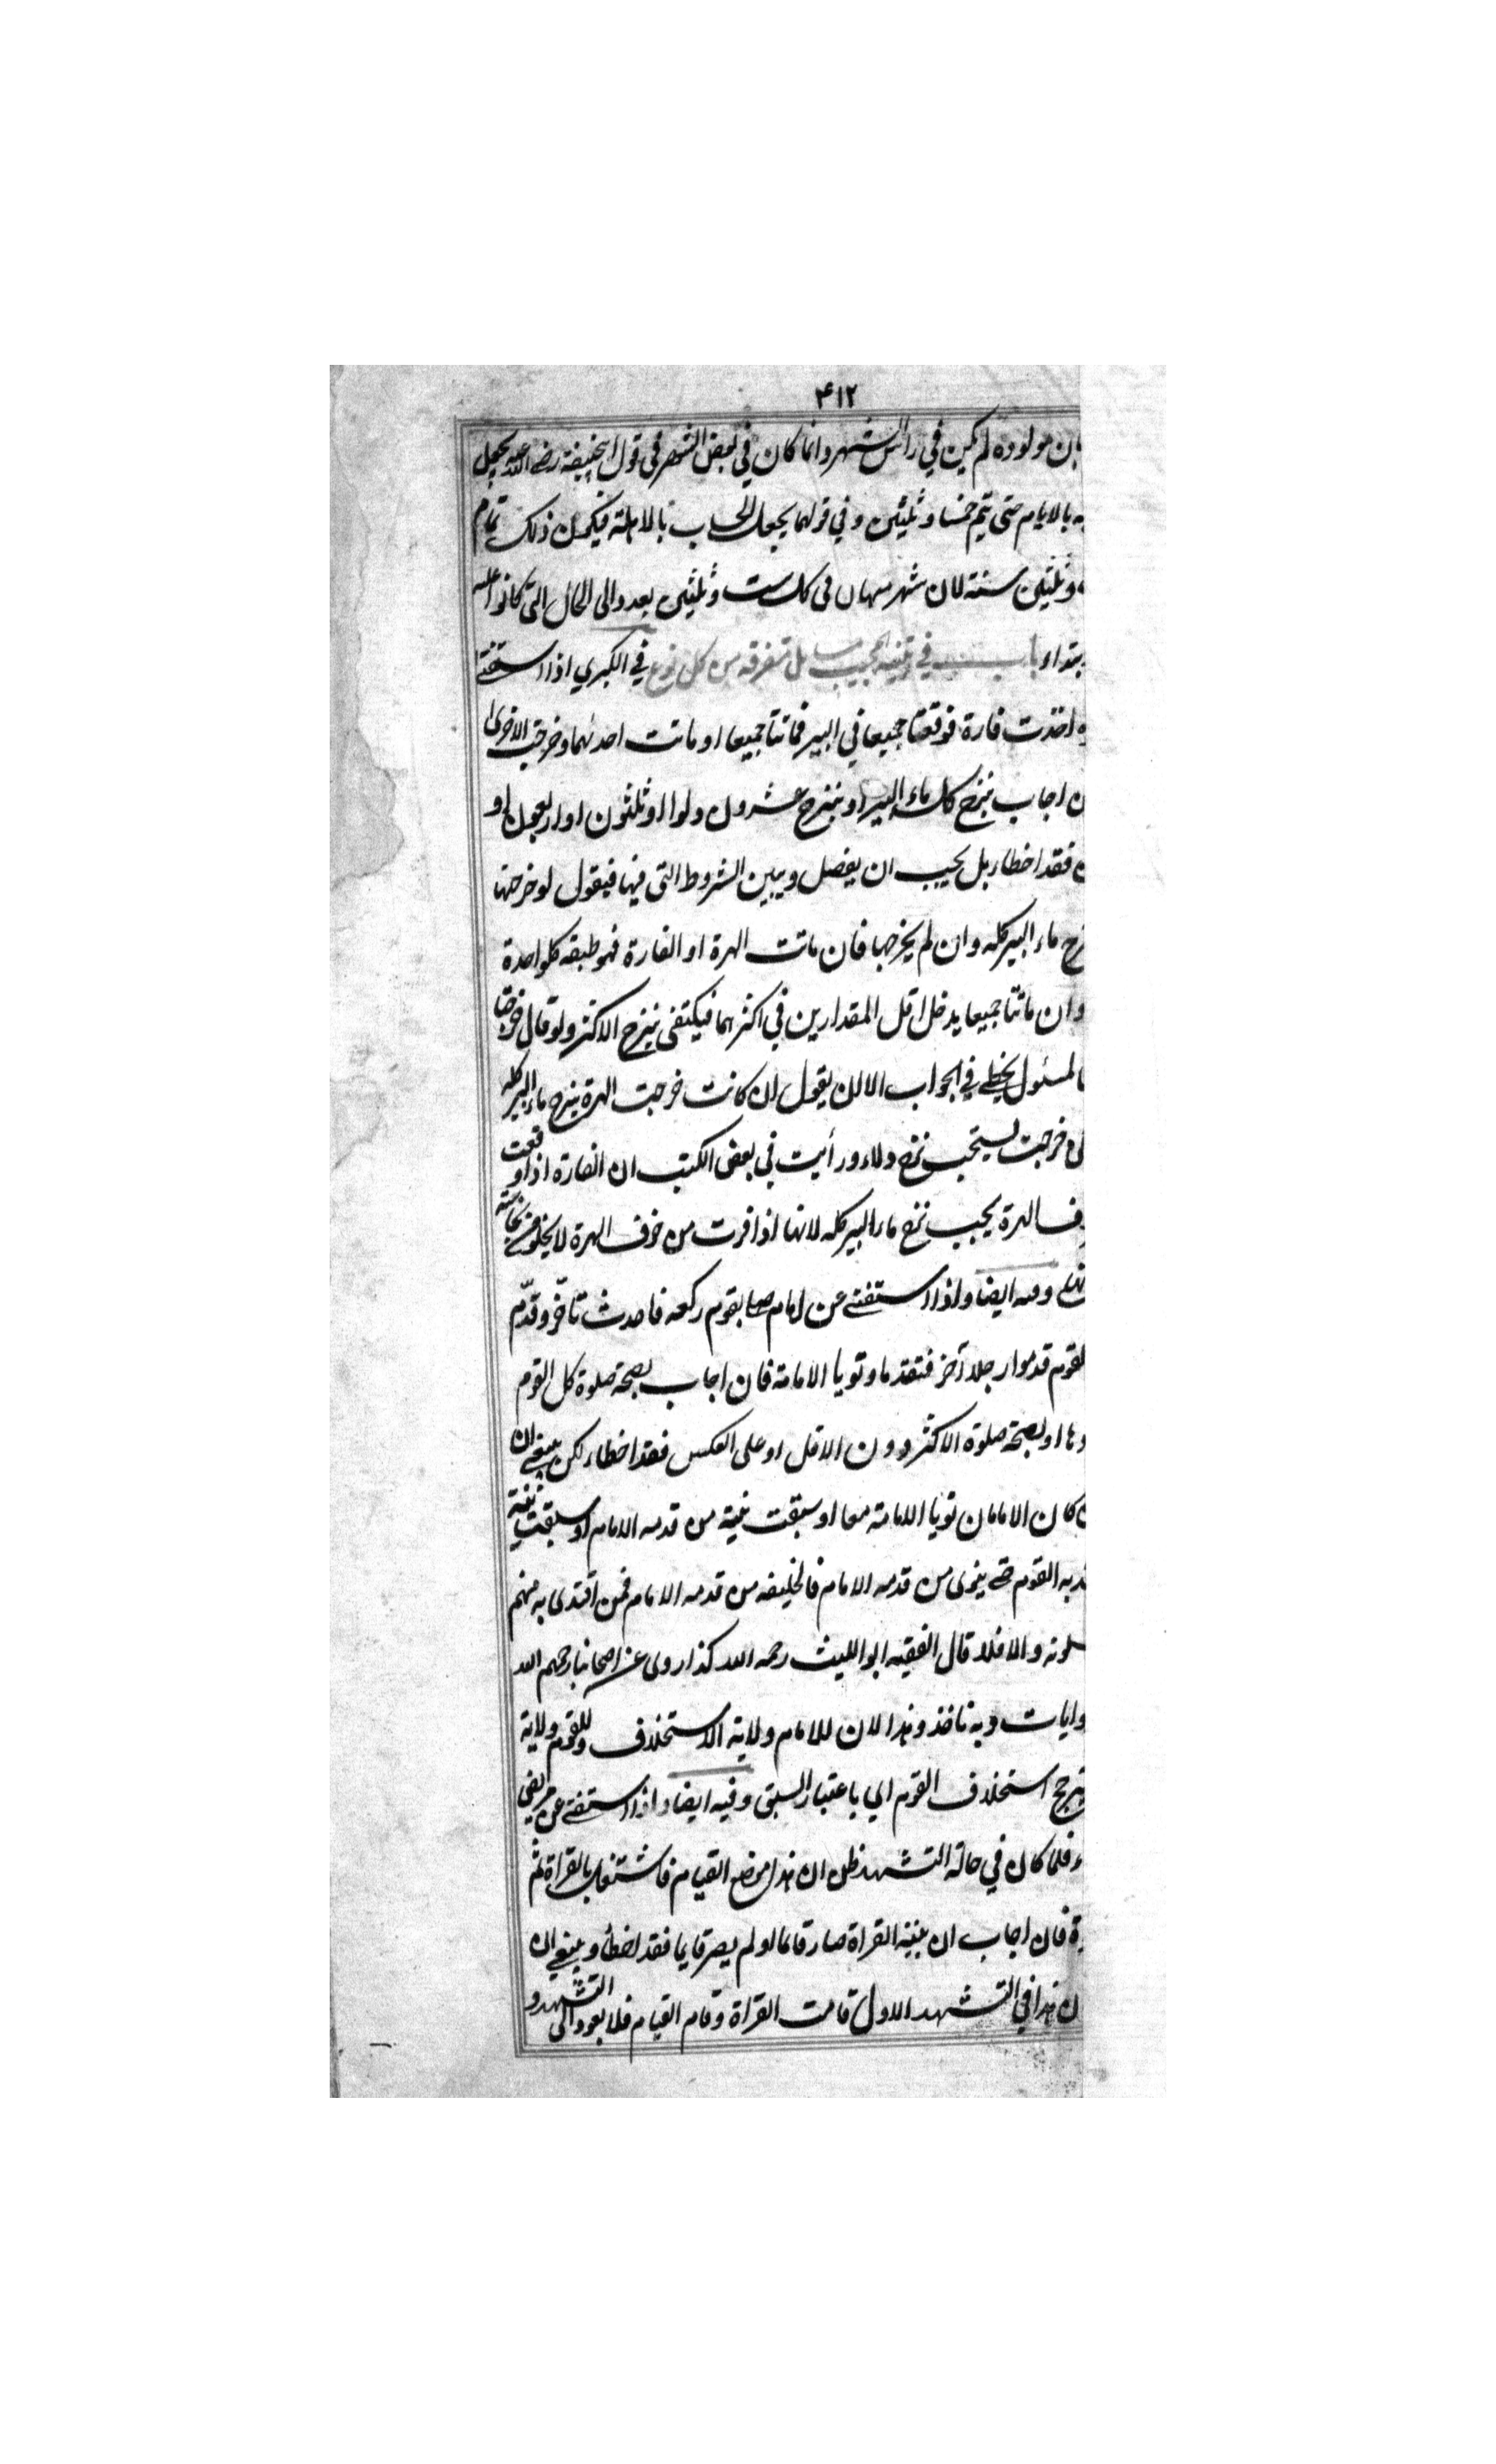 ۴۱۲
بان مولوده لم يكن في رأس الشهر وانما كان في بعض الشهر في قول ابيحنيفة رضي الله عنه يجعل
به بالايام حتى يتم خمسا وثلثين وفي قولهما يجعل الحساب بالاهلة فيكمل ذلك تمام
وثلثين سنة لان شهر في كل ست وثلثين يعدوالى الحال التي كانوا عليه
بتداء باب في تنبيه المجيب مسايل متفرقه من كل نوع في الكبري اذا استفتى
ه اخذت فارة فوقعتا جميعا في البير فماتتا جميعا او ماتت احدىهما وخرجت الاخرى
ن اجاب بنزح كل ماء البير او بنزح عشرون دلوا او ثلثون او اربعون او
ن فقد اخطاء بل يجيب ان يفصل ويبين الشروط التي فيها فيقول لو خرجتا
نزح ماء البير كله وان لم يخرجها فان ماتت الهرة او الفارة فهو طبقه كلواحدة
وان ماتتا جميعا يدخل اقل المقدارين في اكثرهما فيكتفى بنزح الاكثر ولو قال خرجتا
المسئول يخطي في الجواب الا ان يقول ان كانت خرجت الهرة ينزح ماء البير كله
ى خرجت يستحب نزح دلاء ورأيت في بعض الكتب ان الفارة اذا وقعت
وف الهرة يجب نزح ماء البير كله لانها اذا فرت من خوف الهرة لا يخلو من نجاسته
وفيه ايضا واذا استفتى عن امام صلى بقوم ركعه فاحدث تأخّر وقدّم
لقوم قدموا رجلا آخر فتقدما ونويا الامامة فان اجاب بصحة صلوة كل القوم
دها او بصحة صلوة الاكثر دون الاقل او على العكس فقد اخطاء لكن ينبغي ان
ن كان الامامان نويا الامامة معا او سبقت نية من قدمه الامام او سبقت نية
قدمه القوم حتى ينوى من قدمه الامام فالخليفه من قدمه الامام فمن اقتدى به منهم
صلوته والا فلا قال الفقيه ابو الليث رحمه الله كذا روى عن اصحابنا رحمهم الله
وايات وبه ناخذ وهذا لان للامام ولاية الاستخلاف وللقوم ولاية
يترجح استخلاف القوم الي باعتبار السبق وفيه ايضا واذا استفتى عن مريض
ء فلما كان في حالة التشهد ظن ان هذا موضع القيام فاشتغل بالقراة ثم
ة فان اجاب ان بنية القراة صار قائما او لم يصر قايما فقد اخطأ وينبغي ان
ن هذا في التشهد الاول قامت القراة وقام القيام فلا يعود الى التشهد و